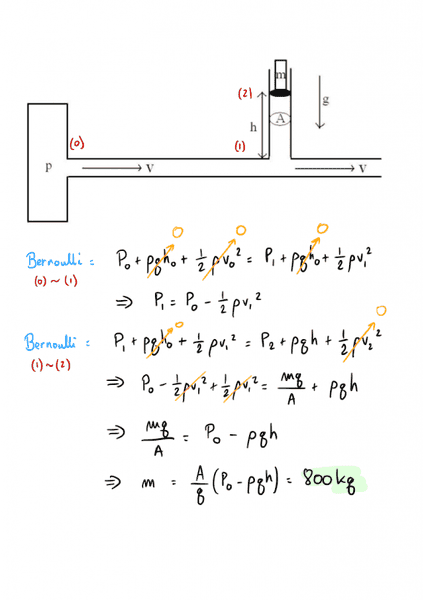 m
(2)
g
A
h
(0)
(1)
p
v
v
0 0 0
Bernoulli : P₀ + ρgh₀ + 1/2 ρv₀² = P₁ + ρgh₀ + 1/2 ρv₁²
(0) ~ (1)
⇒ P₁ = P₀ - 1/2 ρv₁²
0 0
Bernoulli : P₁ + ρgh₀ + 1/2 ρv₁² = P₂ + ρgh + 1/2 ρv₂²
(1) ~ (2)
⇒ P₀ - 1/2 ρv₁² + 1/2 ρv₁² = mg/A + ρgh
⇒ mg/A = P₀ - ρgh
⇒ m = A/g (P₀ - ρgh) = 800 kg